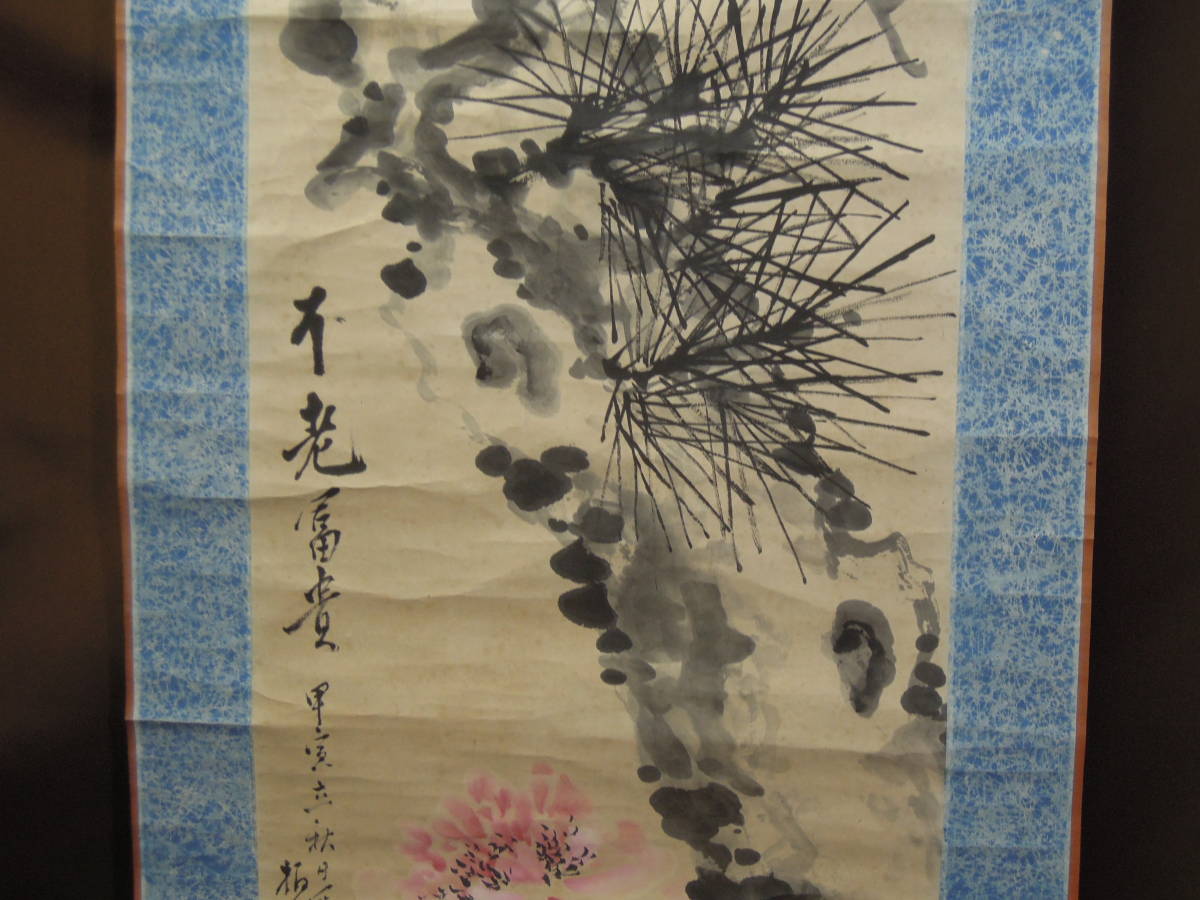 不老富貴
甲寅六秋日